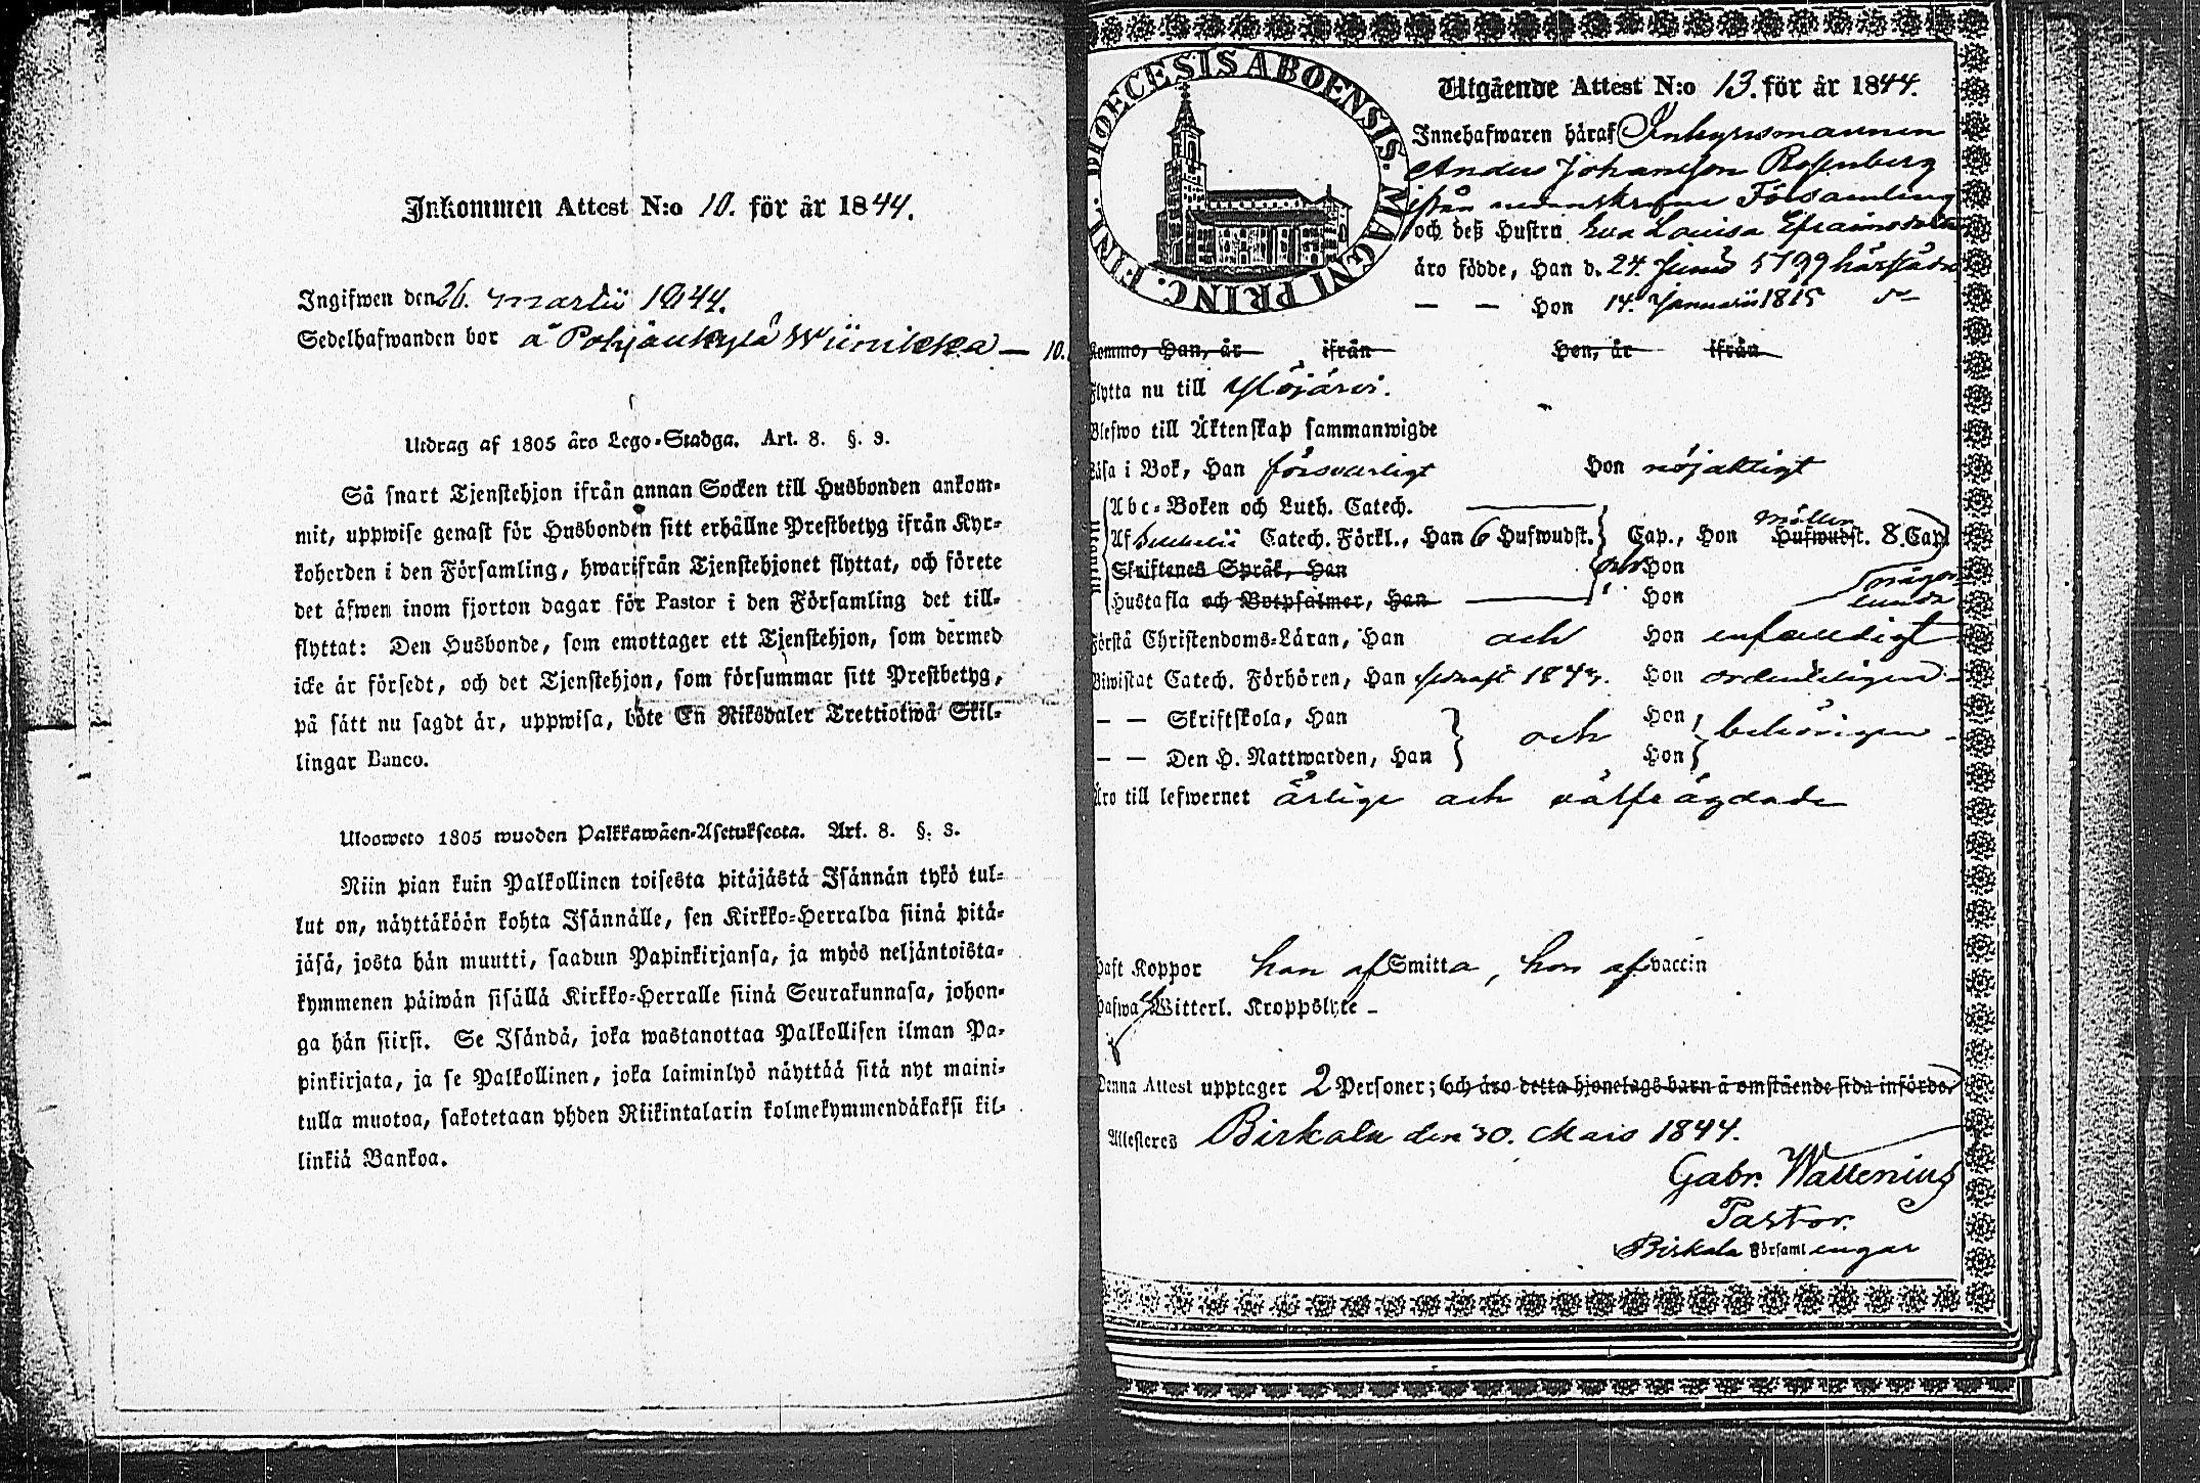 Inkommen Attest N:o 10. för år 1844.
Ingifwen den 26. Martii 1844.
Sedelhafwanden bor å Pohjankylä Wiinikka — 10.
Utdrag af 1805 års Lego-Stadga. Art. 8. §. 3.
Så snart Tjenstehjon ifrån annan Socken till Husbonden ankom-
mit, uppwise genast för Husbonden sitt erhållne Prestbetyg ifrån Kyr-
koherden i den Församling, hwarifrån Tjenstehjonet flyttat, och förete
det äfwen inom fjorton dagar för Pastor i den Församling det till-
flyttat: Den Husbonde, som emottager ett Tjenstehjon, som dermed
icke är försedt, och det Tjenstehjon, som försummar sitt Prestbetyg,
på sätt nu sagdt är, uppwisa, böte En Riksdaler Trettiotwå Skil-
lingar Banco.
Uloosweto 1805 wuoden Palkkawäen-Asetuksesta. Art. 8. §. 3.
Niin pian kuin Palkollinen toisesta pitäjästä Isännän tykö tul-
lut on, näyttäköön kohta Isännälle, sen Kirkko-Herralda siinä pitä-
jäsä, josta hän muutti, saadun Papinkirjansa, ja myös neljäntoista-
kymmenen päiwän sisällä Kirkko-Herralle siinä Seurakunnasa, johon-
ga hän siirsi. Se Isändä, joka wastanottaa Palkollisen ilman Pa-
pinkirjata, ja se Palkollinen, joka laiminlyö näyttää sitä nyt maini-
tulla muotoa, sakotetaan yhden Riikintalarin kolmekymmendäkaksi kil-
linkiä Bankoa.
DIOECESIS ABOENSIS. MAGNI PRINC. FINL.
Utgående Attest N:o 13. för år 1844.
Innehafwaren häraf Inhysesmannen
Anders Johansson Rosenberg
ifrån Församling
och deß Hustru Eva Lovisa Efraimsdotter
äro födde, Han d. 24. Junii 1799 härstädes
— — Hon 14. Januarii 1815 do
Kommo, Han, år ifrån Hon, år ifrån
Flytta nu till Ylöjärvi.
Blefwo till Äktenskap sammanwigde
Läsa i Bok, Han försvarligt Hon nöjaktigt
Abc-Boken och Luth. Catech.
Af Catech. Förkl., Han 6 Hufwudst. Cap., Hon Möller Hufwudst. 8. Cap.
Skriftenes Språk, Han och Hon
Hustafla och Botpsalmer, Han Hon någorlunda
Förstå Christendoms-Läran, Han och Hon enfaldigt
Biwistat Catech. Förhören, Han 184 Hon ordentligen
— — Skriftskola, Han Hon
och behörigen
— — Den H. Nattwarden, Han Hon
Äro till lefwernet ärlige och välfrägdade
Haft Koppor han af Smitta, hon af vaccin
Hafwa Witterl. Kroppslyte –
Denna Attest upptager 2 Personer; och äro detta hjonelags barn å omstående sida införde.
Attesteres Birkala den 20. Mars 1844.
Gabr. Wallenius
Pastor.
Birkala Församlingar